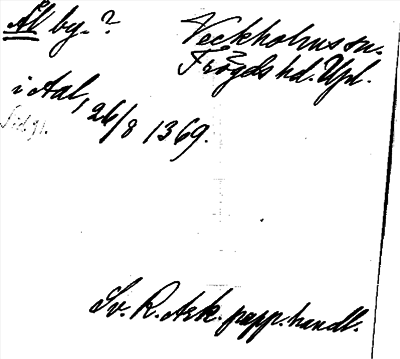 Ål by. ?
Veckholms sn.
Trögds hd. Upl.
i Aal, 26/8 1369.
Sv. R. Ark. papp. handl.